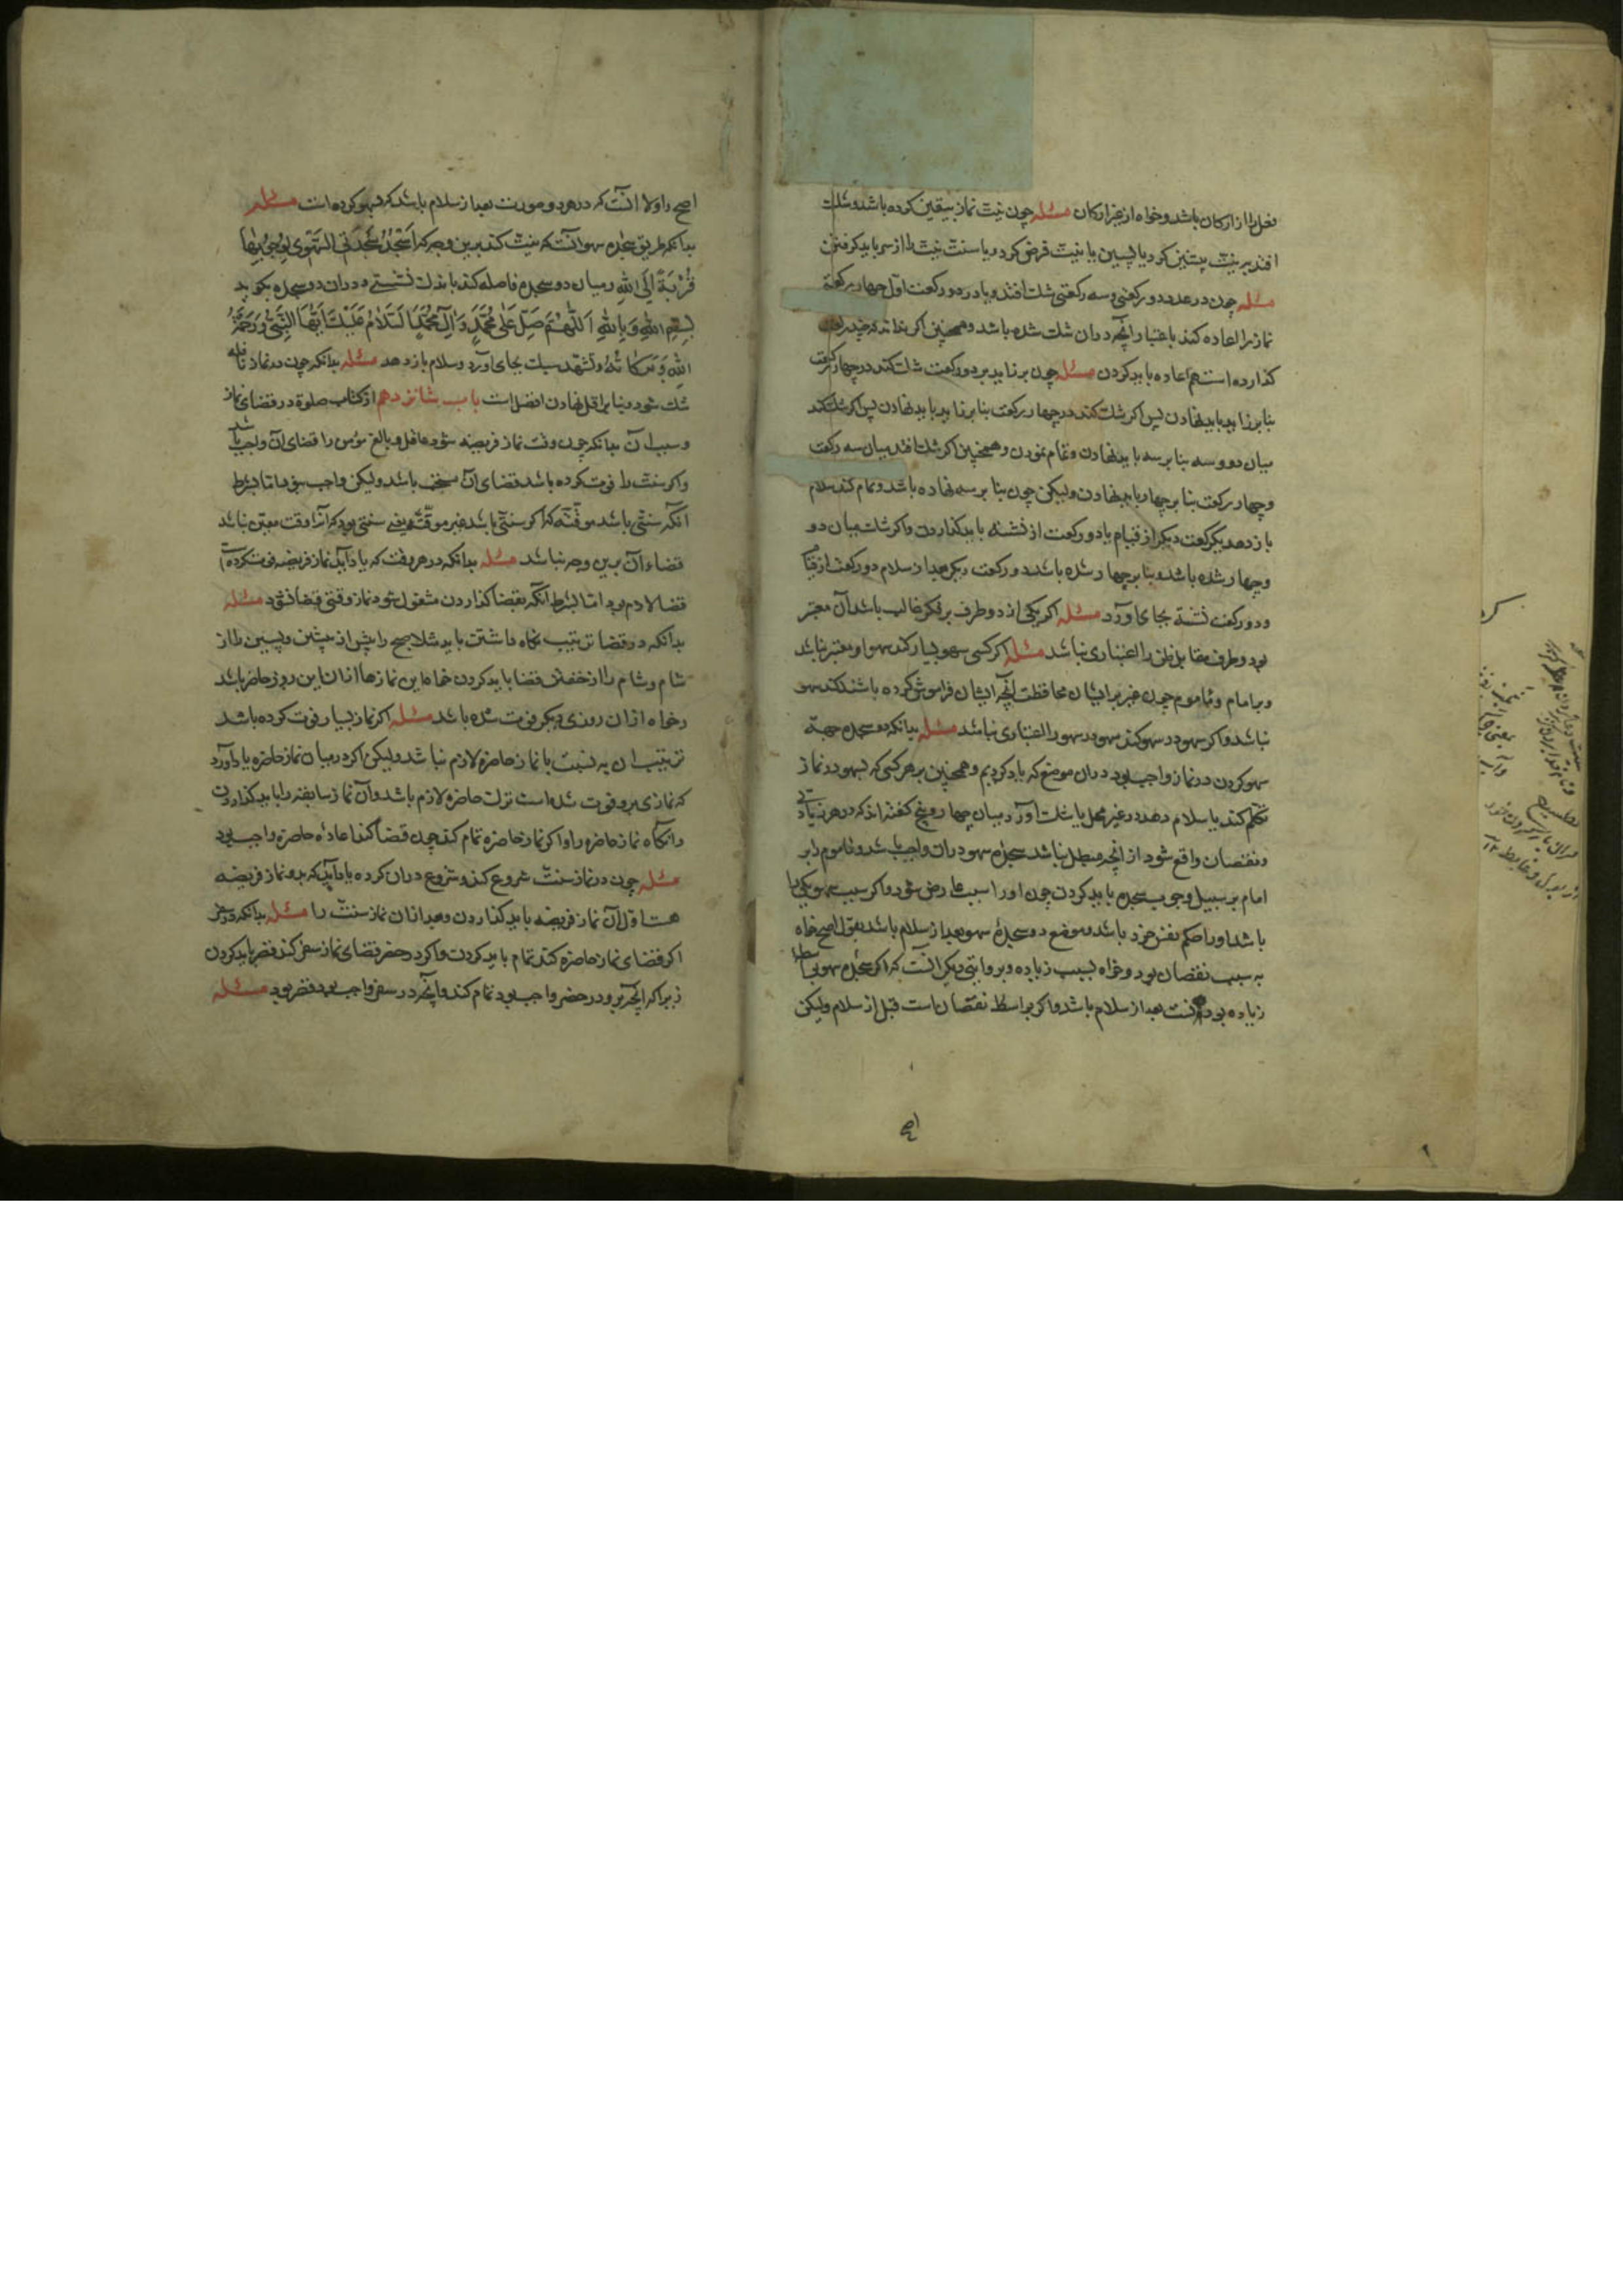 فعل را از ارکان باشد و خواه از غیر ارکان مسئله چون نیت نماز بیقین کرده باشد و شک
افتد بر نیت پیشین کرد یا پسین یا نیت فرض کرد و یا سنت نیت را از سر باید کرفتن
مسئله چون در عدد دو رکعتی و سه رکعتی شک افتد و یا در دو رکعت اول چهار رکعة
نماز را اعاده کند باعتبار آنچه در آن شک شده باشد و همچنین اکر نداند که چند رکعت
کذارده است هم اعاده باید کردن مسئله چون بر زاید بر دو رکعت شک کند در چهار رکعت
بنا بر زاید باید نهادن پس اکر شک کند
میان دو و سه بنا بر سه باید نهادن و تمام نمودن و همچنین اکر شک افتد میان سه رکعت
و چهار رکعت بنا بر چهار باید نهادن ولیکن چون بنا بر سه نهاده باشد و تمام کند سلام
باز دهد یک رکعت دیکر از قیام یا دو رکعت از نشسته باید کذاردن و اکر شک میان دو
و چهار شده باشد و بنا بر چهار شده باشد دو رکعت دیکر بعد از سلام دو رکعت از قیام
و دو رکعت نشسته بجای آورد مسئله اکر یکی از دو طرف بر فکر غالب باشد آن معتبر
بود و طرف مقابل ظن را اعتباری نباشد مسئله اکر کسی سهو بسیار کند سهو او معتبر نباشد
و بر امام و مأموم چون غیر بر ایشان محافظت آنچه ایشان فراموش کرده باشند کند سهو
نباشد و اکر سهو در سهو کند سهو در سهو را اعتباری نباشد مسئله بدانکه دو سجده جهة
سهو کردن در نماز واجب بود در آن موضع که یاد کردیم و همچنین بر هر کسی که بسهو در نماز
تکلم کند یا سلام دهد در غیر محل یا شک آورد میان چهار و پنج کفته اند که در هر زیادتی
و نقصان واقع شود از آنچه مبطل نباشد سجده سهو در آن واجب باشد و مأموم را بر
امام بر سبیل وجوب سجده باید کردن چون او را سبب عارض شود و اکر سبب سهو یکی را
باشد او را حکم نفس خود باشد و موضع دو سجده سهو بعد از سلام باشد بقول اصح خواه
به سبب نقصان بود و خواه بسبب زیاده و بروایتی دیکر آنست که اکر سجده سهو بواسطه
زیاده بود آنست بعد از سلام باشد و اکر بواسطه نقصان است قبل از سلام ولیکن
اصح و اولا آنست که در هر دو صورت بعد از سلام باشد که سهو کرده است مسئله
بدانکه طریق سجده سهو آنست که نیت کند بدین وجه که اَسْجُدُ سَجْدَتَيِ السَّهْوِ لِوُجُوبِهَا
قُرْبَةً اِلَى اللهِ و میان دو سجده فاصله کند باندک نشستی و در آن دو سجده بکوید
بِسْمِ اللهِ وَ بِاللهِ اَللّهُمَّ صَلِّ عَلىٰ مُحَمَّدٍ وَ آلِ مُحَمَّدٍ اَلسَّلَامُ عَلَيْكَ اَيُّهَا النَّبِيُّ وَ رَحْمَةُ
اللهِ وَ بَرَكَاتُهُ و تشهد سبک بجای آورد و سلام باز دهد مسئله بدانکه چون در نماز نافله
شک شود بنا بر اقل نهادن افضل است باب شانزدهم از کتاب صلوة در قضای نماز
و سبب آن بدانکه چون وقت نماز فریضه شود عاقل و بالغ مؤمن را قضای آن واجب باشد
و اکر سنت را فوت کرده باشد قضای آن مستحب باشد ولیکن واجب نبود اما بشرط
آنکه سنتی باشد موقته که اکر سنتی باشد غیر موقته یعنی سنتی بود که آنرا وقت معین نباشد
قضاء آن بدین وجه نباشد مسئله بدانکه در هر وقت که یاد آید نماز فریضه فوت کرده را
قضا لازم بود اما بشرط آنکه بقضا کذاردن مشغول شود نماز وقتی قضا نشود مسئله
بدانکه در قضا ترتیب نکاه داشتن باید مثلا صبح را پیش از پیشین و پسین را از
شام و شام را از خفتن قضا باید کردن خواه این نمازها از آن این روز حاضر باشد
و خواه از آن روزی دیکر فوت شده باشد مسئله اکر نماز بسیار فوت کرده باشد
ترتیب آن به نسبت با نماز حاضره لازم نباشد ولیکن اکر در میان نماز حاضره یاد آورد
که نمازی برو فوت شده است ترک حاضره لازم باشد و آن نماز سابقه را باید کذاردن
و آنکاه نماز حاضره را و اکر نماز حاضره تمام کند چون قضا کند اعاده حاضره واجب بود
مسئله چون در نماز سنت شروع کند و شروع در آن کرده یاد آید که برو نماز فریضه
هست اول آن نماز فریضه باید کذاردن و بعد از آن نماز سنت را مسئله بدانکه در سفر
اکر قضای نماز حاضره کند تمام باید کردن و اکر در حضر قضای نماز سفر کند قصر باید کردن
زیرا که آنچه برو در حضر واجب بود تمام کند و آنچه در سفر واجب بود قصر بود مسئله